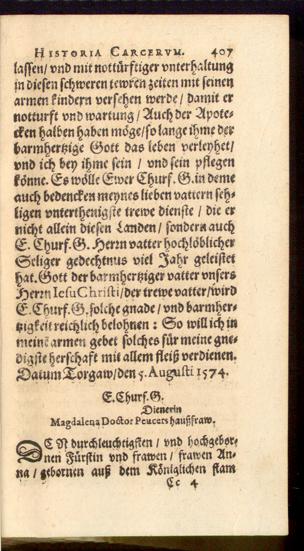 HISTORIA CARCERVM. 407
lassen/ vnd mit nottürfftiger vnterhaltung
in diesen schweren tewren zeiten mit seinen
armen kindern versehen werde/ damit er
notturft vnd wartung/ Auch der Apote-
cken halben haben möge/ so lange ihme der
barmhertzige Gott das leben verleyhet/
vnd ich bey ihme sein/ vnd sein pflegen
könne. Es wölle Ewer Churf. G. in deme
auch bedencken meynes lieben vattern seh-
ligen vnterthenigste trewe dienste/ die er
nicht allein diesen Landen/ sondern auch
E. Churf. G. Herrn vatter hochlöblicher
Seliger gedechtnus viel Jahr geleistet
hat. Gott der barmhertziger vatter vnsers
Herrn Iesu Christi/ der trewe vatter/ wird
E. Churf. G. solche gnade/ vnd barmher-
tzigkeit reichlich belohnen: So will ich in
meine armen gebet solches für meine gne-
digste herschaft mit allem fleiß verdienen.
Datum Torgaw/ den 5. Augusti 1574.
E. Churf. G.
Dienerin
Magdalena Doctor Peucers haußfraw.
DEN durchleuchtigsten/ vnd hochgebor-
nen Fürstin vnd frawen/ frawen An-
na/ gebornen auß dem Königlichen stam
Cc 4